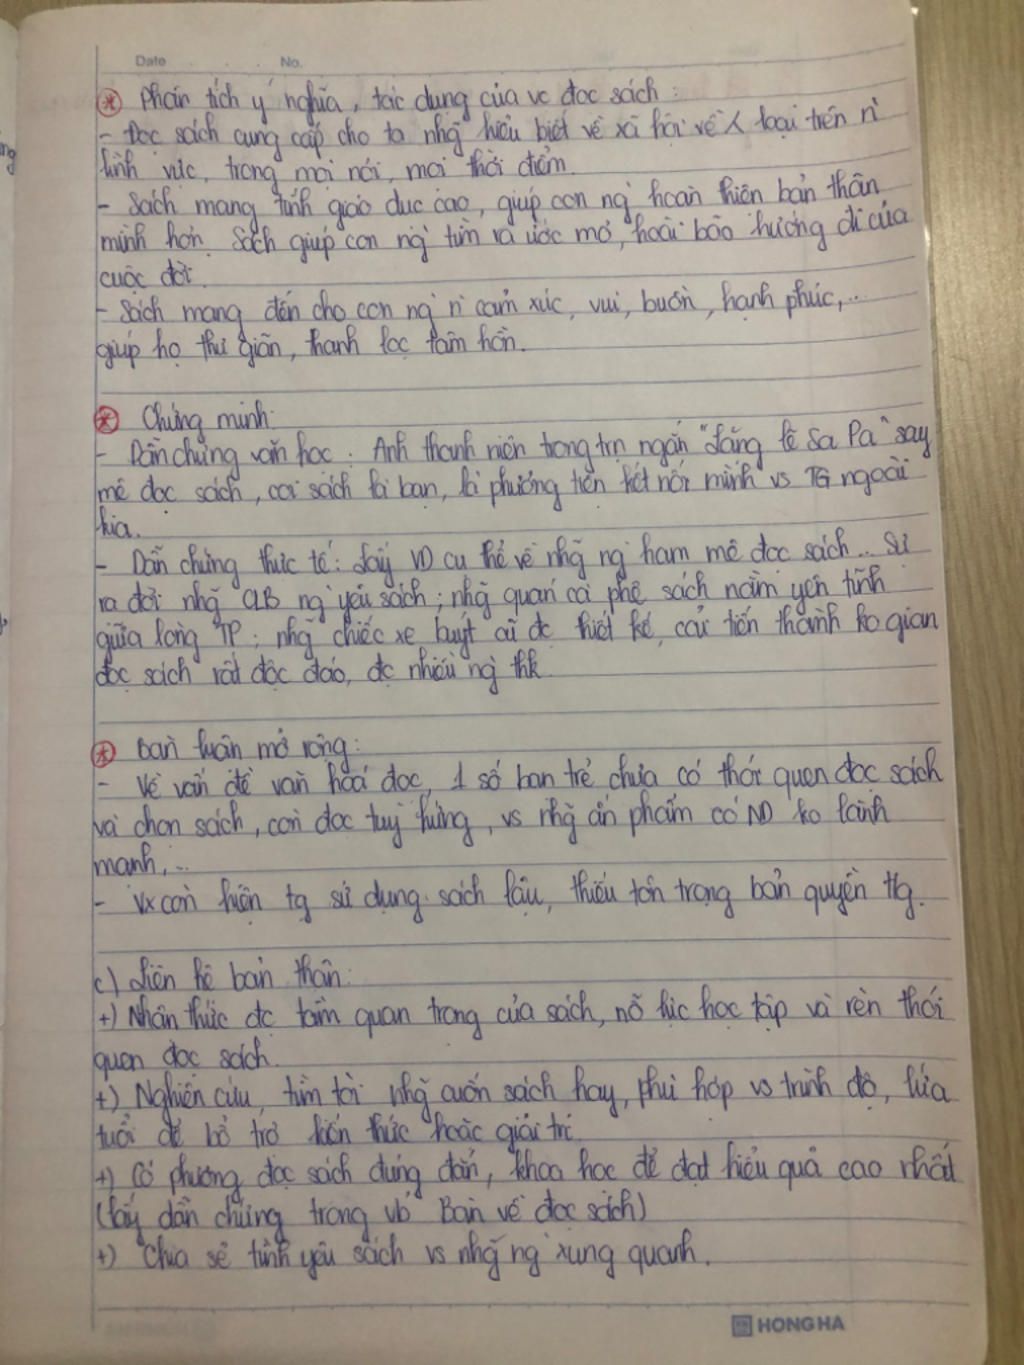 Date No.
* Phân tích ý nghĩa, tác dụng của vc đọc sách:
- Đọc sách cung cấp cho ta nhg~ hiểu biết về xã hội về loại trên n`
lĩnh vực, trong mọi nơi, mọi thời điểm.
- Sách mang tính giáo dục cao, giúp con ng` hoàn thiện bản thân
mình hơn. Sách giúp con ng` tìm ra ước mơ, hoài bão hướng đi của
cuộc đời.
- Sách mang đến cho con ng` n` cảm xúc, vui, buồn, hạnh phúc,...
giúp họ thư giãn, thanh lọc tâm hồn.
* Chứng minh:
- Dẫn chứng văn học: Anh thanh niên trong trn ngắn "Lặng lẽ Sa Pa" say
mê đọc sách, coi sách là bạn, là phương tiện kết nối mình vs TG ngoài
kia.
- Dẫn chứng thực tế: Lấy VD cụ thể về nhg~ ng` ham mê đọc sách... Sự
ra đời nhg~ CLB ng` yêu sách; nhg~ quán cà phê sách nằm yên tĩnh
giữa lòng TP; nhg~ chiếc xe buýt cũ đc thiết kế, cải tiến thành ko gian
đọc sách rất độc đáo, đc nhiều ng` thk.
* Bàn luận mở rộng:
- Về vấn đề văn hoá đọc, 1 số bạn trẻ chưa có thói quen đọc sách
và chọn sách, còn đọc tuỳ hứng, vs nhg~ ấn phẩm có ND ko lành
mạnh,...
- Vx còn hiện tg sử dụng sách lậu, thiếu tôn trọng bản quyền tg.
c) Liên hệ bản thân:
+) Nhận thức đc tầm quan trọng của sách, nỗ lực học tập và rèn thói
quen đọc sách.
+) Nghiên cứu, tìm tòi nhg~ cuốn sách hay, phù hợp vs trình độ, lứa
tuổi để bổ trợ kiến thức hoặc giải trí.
+) Có phương đọc sách đúng đắn, khoa học để đạt hiểu quả cao nhất
(lấy dẫn chứng trong vb Bàn về đọc sách)
+) Chia sẻ tình yêu sách vs nhg~ ng` xung quanh.
HONG HA